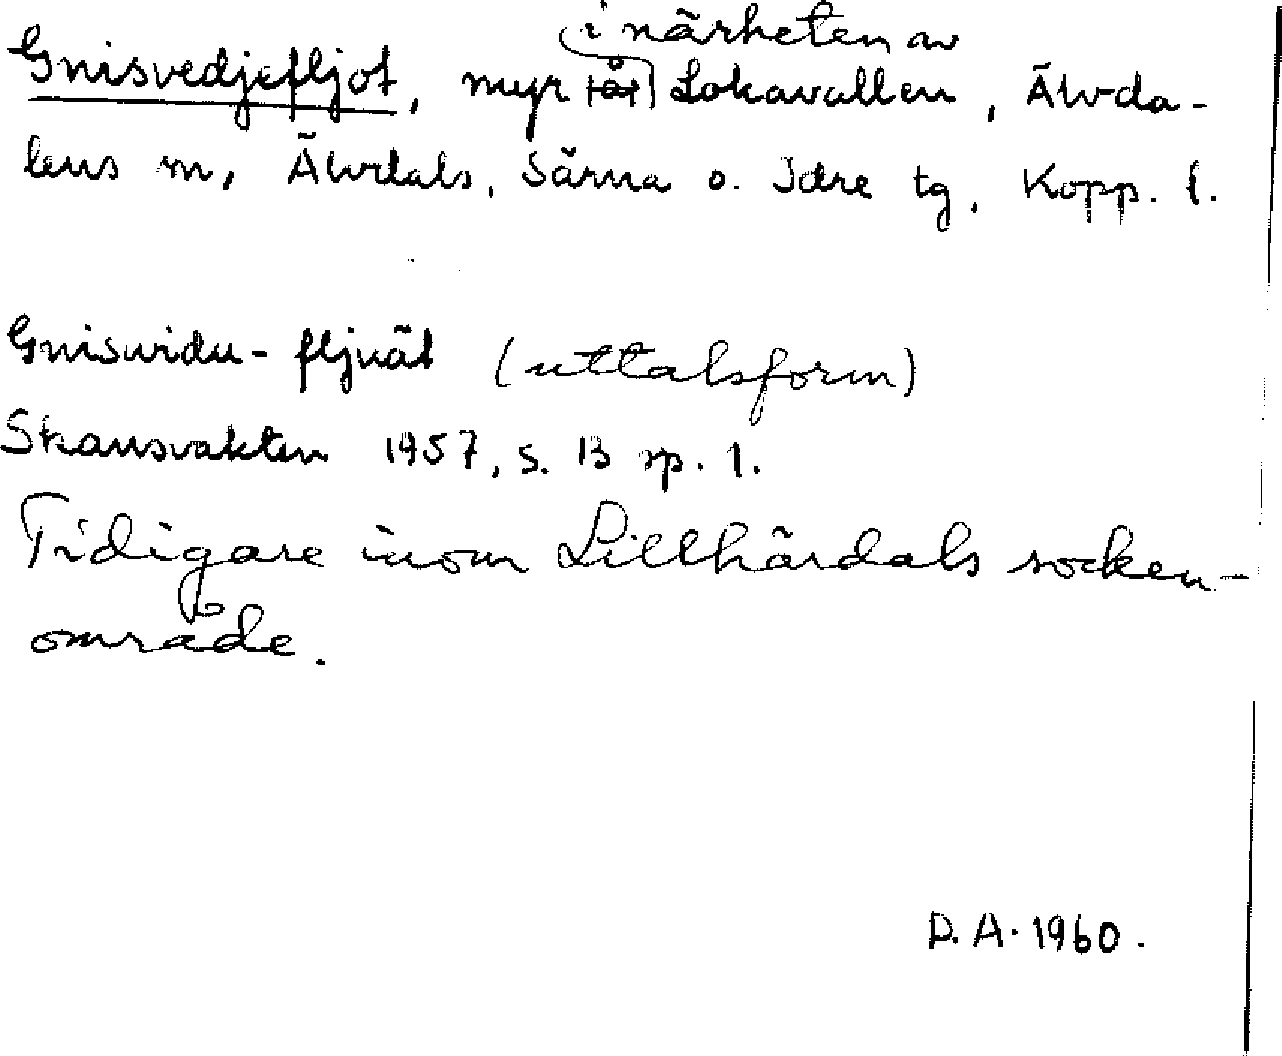 i närheten av
Gnisvedjefljot, myr på Lokavallen, Älvda-
lens m, Älvdals, Särna o. Idre tg, Kopp. l.
Gnisvidu-fljuät (uttalsform)
Skansvakten 1957, s. 13 sp. 1.
Tidigare inom Lillhärdals socken-
område.
D. A. 1960.